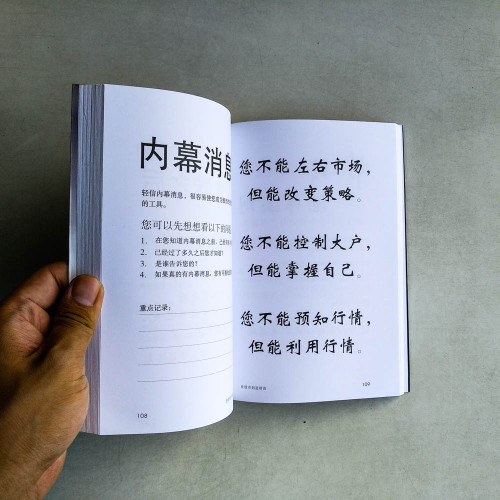 内幕消息
轻信内幕消息，很容易
的工具。
您可以先想想看以下的问
1. 在您知道内幕消息之前，已经有
2. 已经过了多久之后您才知道？
3. 是谁告诉您的？
4. 如果真的有内幕消息，您有
重点记录：
108
您不能左右市场，
但能改变策略。
您不能控制大户，
但能掌握自己。
您不能预知行情，
但能利用行情。
109